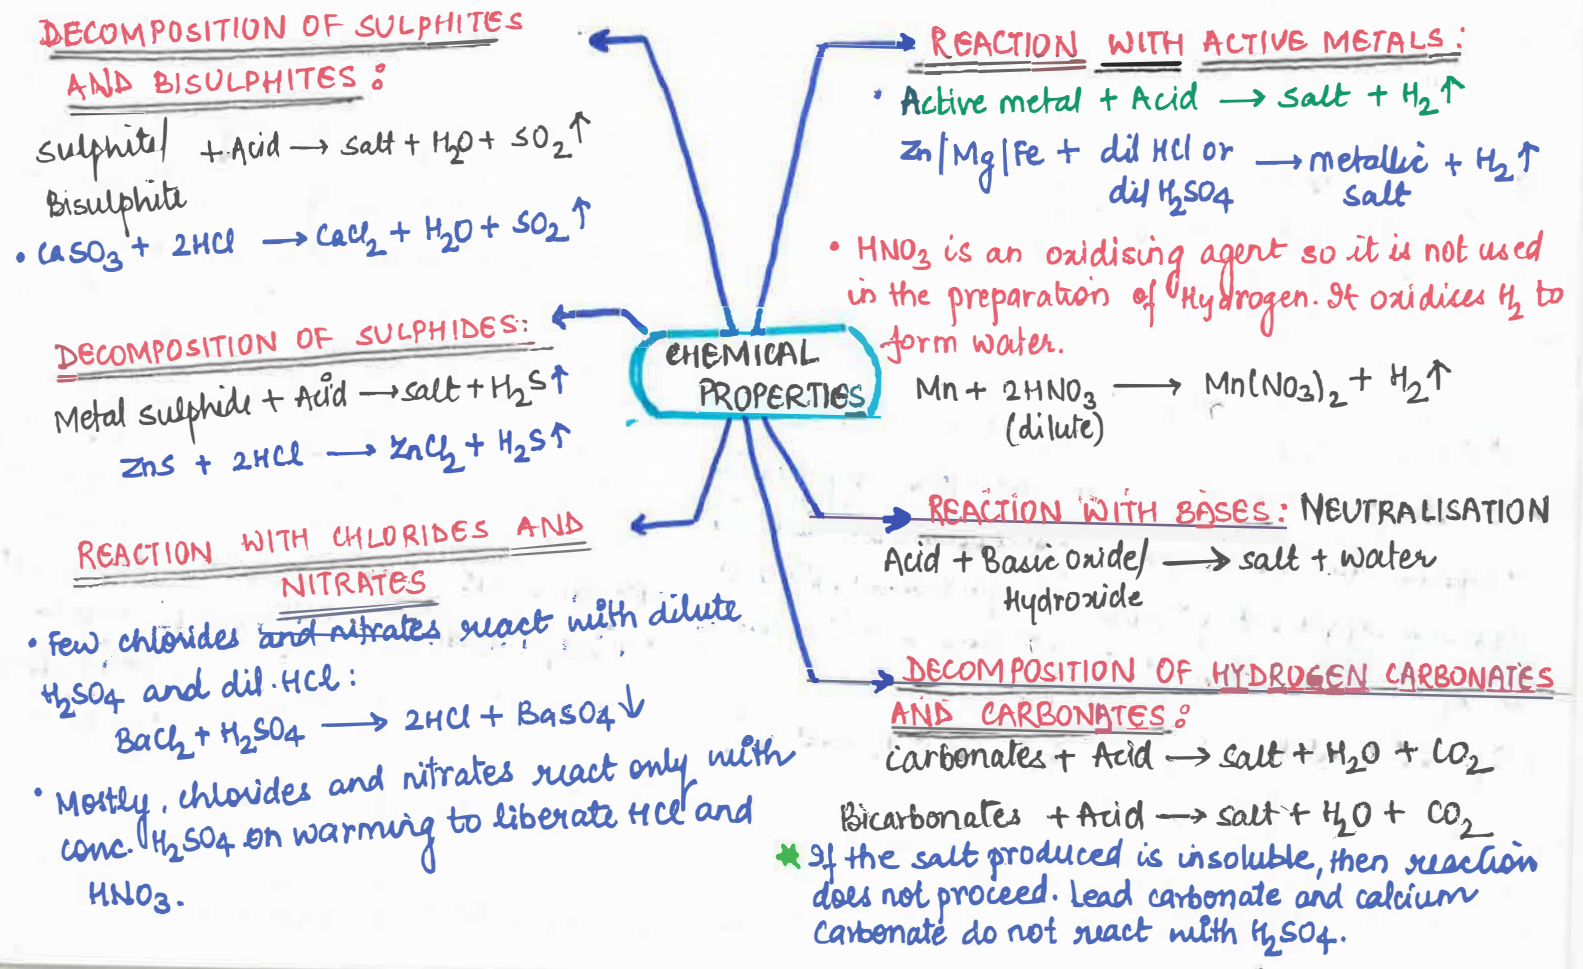 DECOMPOSITION OF SULPHITES
AND BISULPHITES :
Sulphite/ + Acid → salt + H₂O + SO₂↑
Bisulphite
• CaSO₃ + 2HCl → CaCl₂ + H₂O + SO₂↑
DECOMPOSITION OF SULPHIDES:
Metal sulphide + Acid → salt + H₂S↑
ZnS + 2HCl → ZnCl₂ + H₂S↑
REACTION WITH CHLORIDES AND
NITRATES
• Few chlorides and nitrates react with dilute
H₂SO₄ and dil. HCl :
BaCl₂ + H₂SO₄ → 2HCl + BaSO₄↓
• Mostly, chlorides and nitrates react only with
conc. H₂SO₄ on warming to liberate HCl and
HNO₃.
CHEMICAL
PROPERTIES
REACTION WITH ACTIVE METALS :
• Active metal + Acid → Salt + H₂↑
Zn|Mg|Fe + dil HCl or → metallic + H₂↑
dil H₂SO₄ salt
• HNO₃ is an oxidising agent so it is not used
in the preparation of Hydrogen. It oxidices H₂ to
form water.
Mn + 2HNO₃ → Mn(NO₃)₂ + H₂↑
(dilute)
REACTION WITH BASES : NEUTRALISATION
Acid + Basic Oxide/ → salt + water
Hydroxide
DECOMPOSITION OF HYDROGEN CARBONATES
AND CARBONATES :
Carbonates + Acid → Salt + H₂O + CO₂
Bicarbonates + Acid → Salt + H₂O + CO₂
If the salt produced is insoluble, then reaction
does not proceed. Lead carbonate and calcium
Carbonate do not react with H₂SO₄.